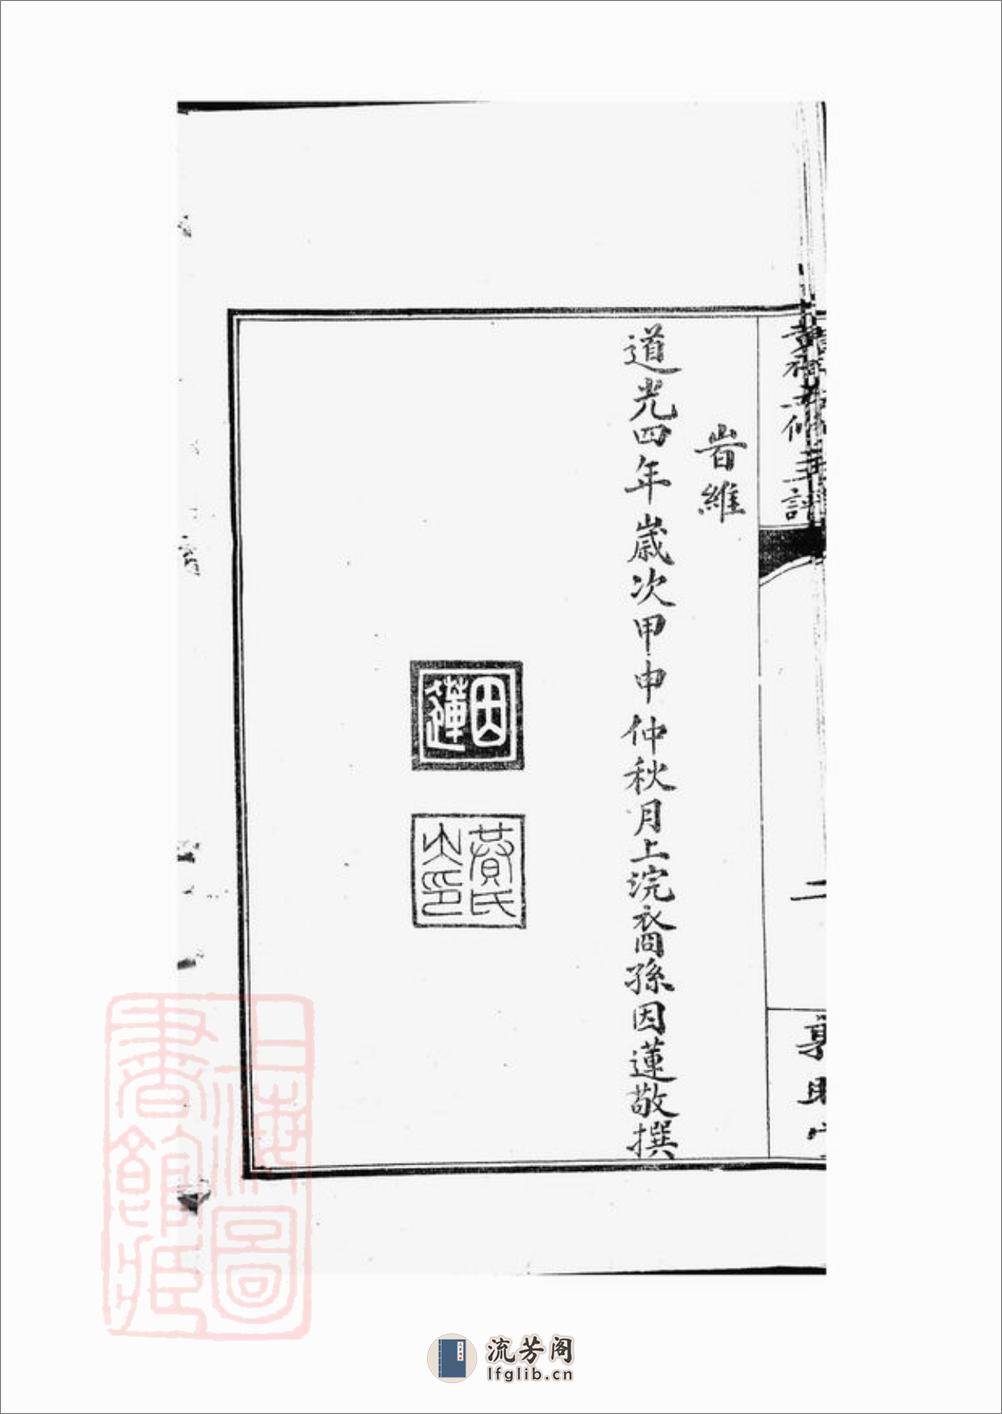 旹維
道光四年歲次甲申仲秋月上浣裔孫因蓮敬撰
因蓮
黃氏之印
二
上海圖書館藏
流芳阁
lfglib.cn